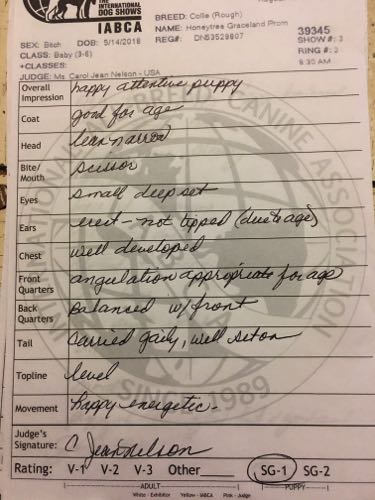 THE INTERNATIONAL DOG SHOWS
IABCA
BREED: Collie (Rough)
NAME: Honeytree Graceland Prom
39345
SEX: Bitch DOB: 5/14/2018 REG#: DN53529807 SHOW #: 3
CLASS: Baby (3-6) RING #: 3
+CLASSES: 9:30 AM
JUDGE: Ms. Carol Jean Nelson - USA
Overall Impression happy attentive puppy
Coat good for age
Head lean narrow
Bite/Mouth scissor
Eyes small deep set
Ears erect - not tipped (due to age)
Chest well developed
Front Quarters angulation appropriate for age
Back Quarters Balanced w/front
Tail carried gaily, well set on
Topline level
Movement happy energetic -
Judge's Signature: C Jean Nelson
Rating: V-1 V-2 V-3 Other____ SG-1 SG-2
ADULT PUPPY
White - Exhibitor Yellow - IABCA Pink - Judge
INTERNATIONAL CANINE ASSOCIATION
SINCE 1989